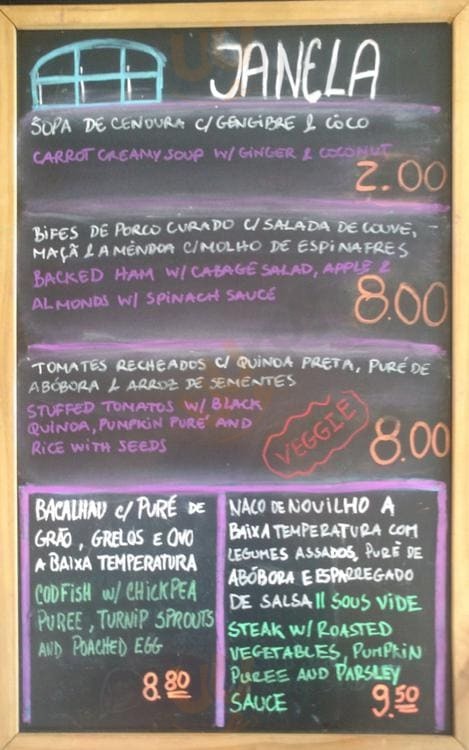 JANELA
SOPA DE CENOURA C/GENGIBRE & COCO
CARROT CREAMY SOUP W/ GINGER & COCONUT
2.00
BIFES DE PORCO CURADO C/SALADA DE COUVE,
MAÇÃ & AMÊNDOA C/MOLHO DE ESPINAFRES
BACKED HAM W/ CABAGE SALAD, APPLE &
ALMONDS W/ SPINACH SAUCE
8.00
TOMATES RECHEADOS C/ QUINOA PRETA, PURÉ DE
ABÓBORA & ARROZ DE SEMENTES
STUFFED TOMATOS W/ BLACK
QUINOA, PUMPKIN PURÉ AND
RICE WITH SEEDS
VEGGIE
8.00
BACALHAU C/ PURÉ DE
GRÃO, GRELOS E OVO
A BAIXA TEMPERATURA
CODFISH W/ CHICKPEA
PUREE, TURNIP SPROUTS
AND POACHED EGG
8.80
NACO DE NOVILHO A
BAIXA TEMPERATURA COM
LEGUMES ASSADOS, PURÉ DE
ABÓBORA E ESPARREGADO
DE SALSA || SOUS VIDE
STEAK W/ ROASTED
VEGETABLES, PUMPKIN
PUREE AND PARSLEY
SAUCE
9.50